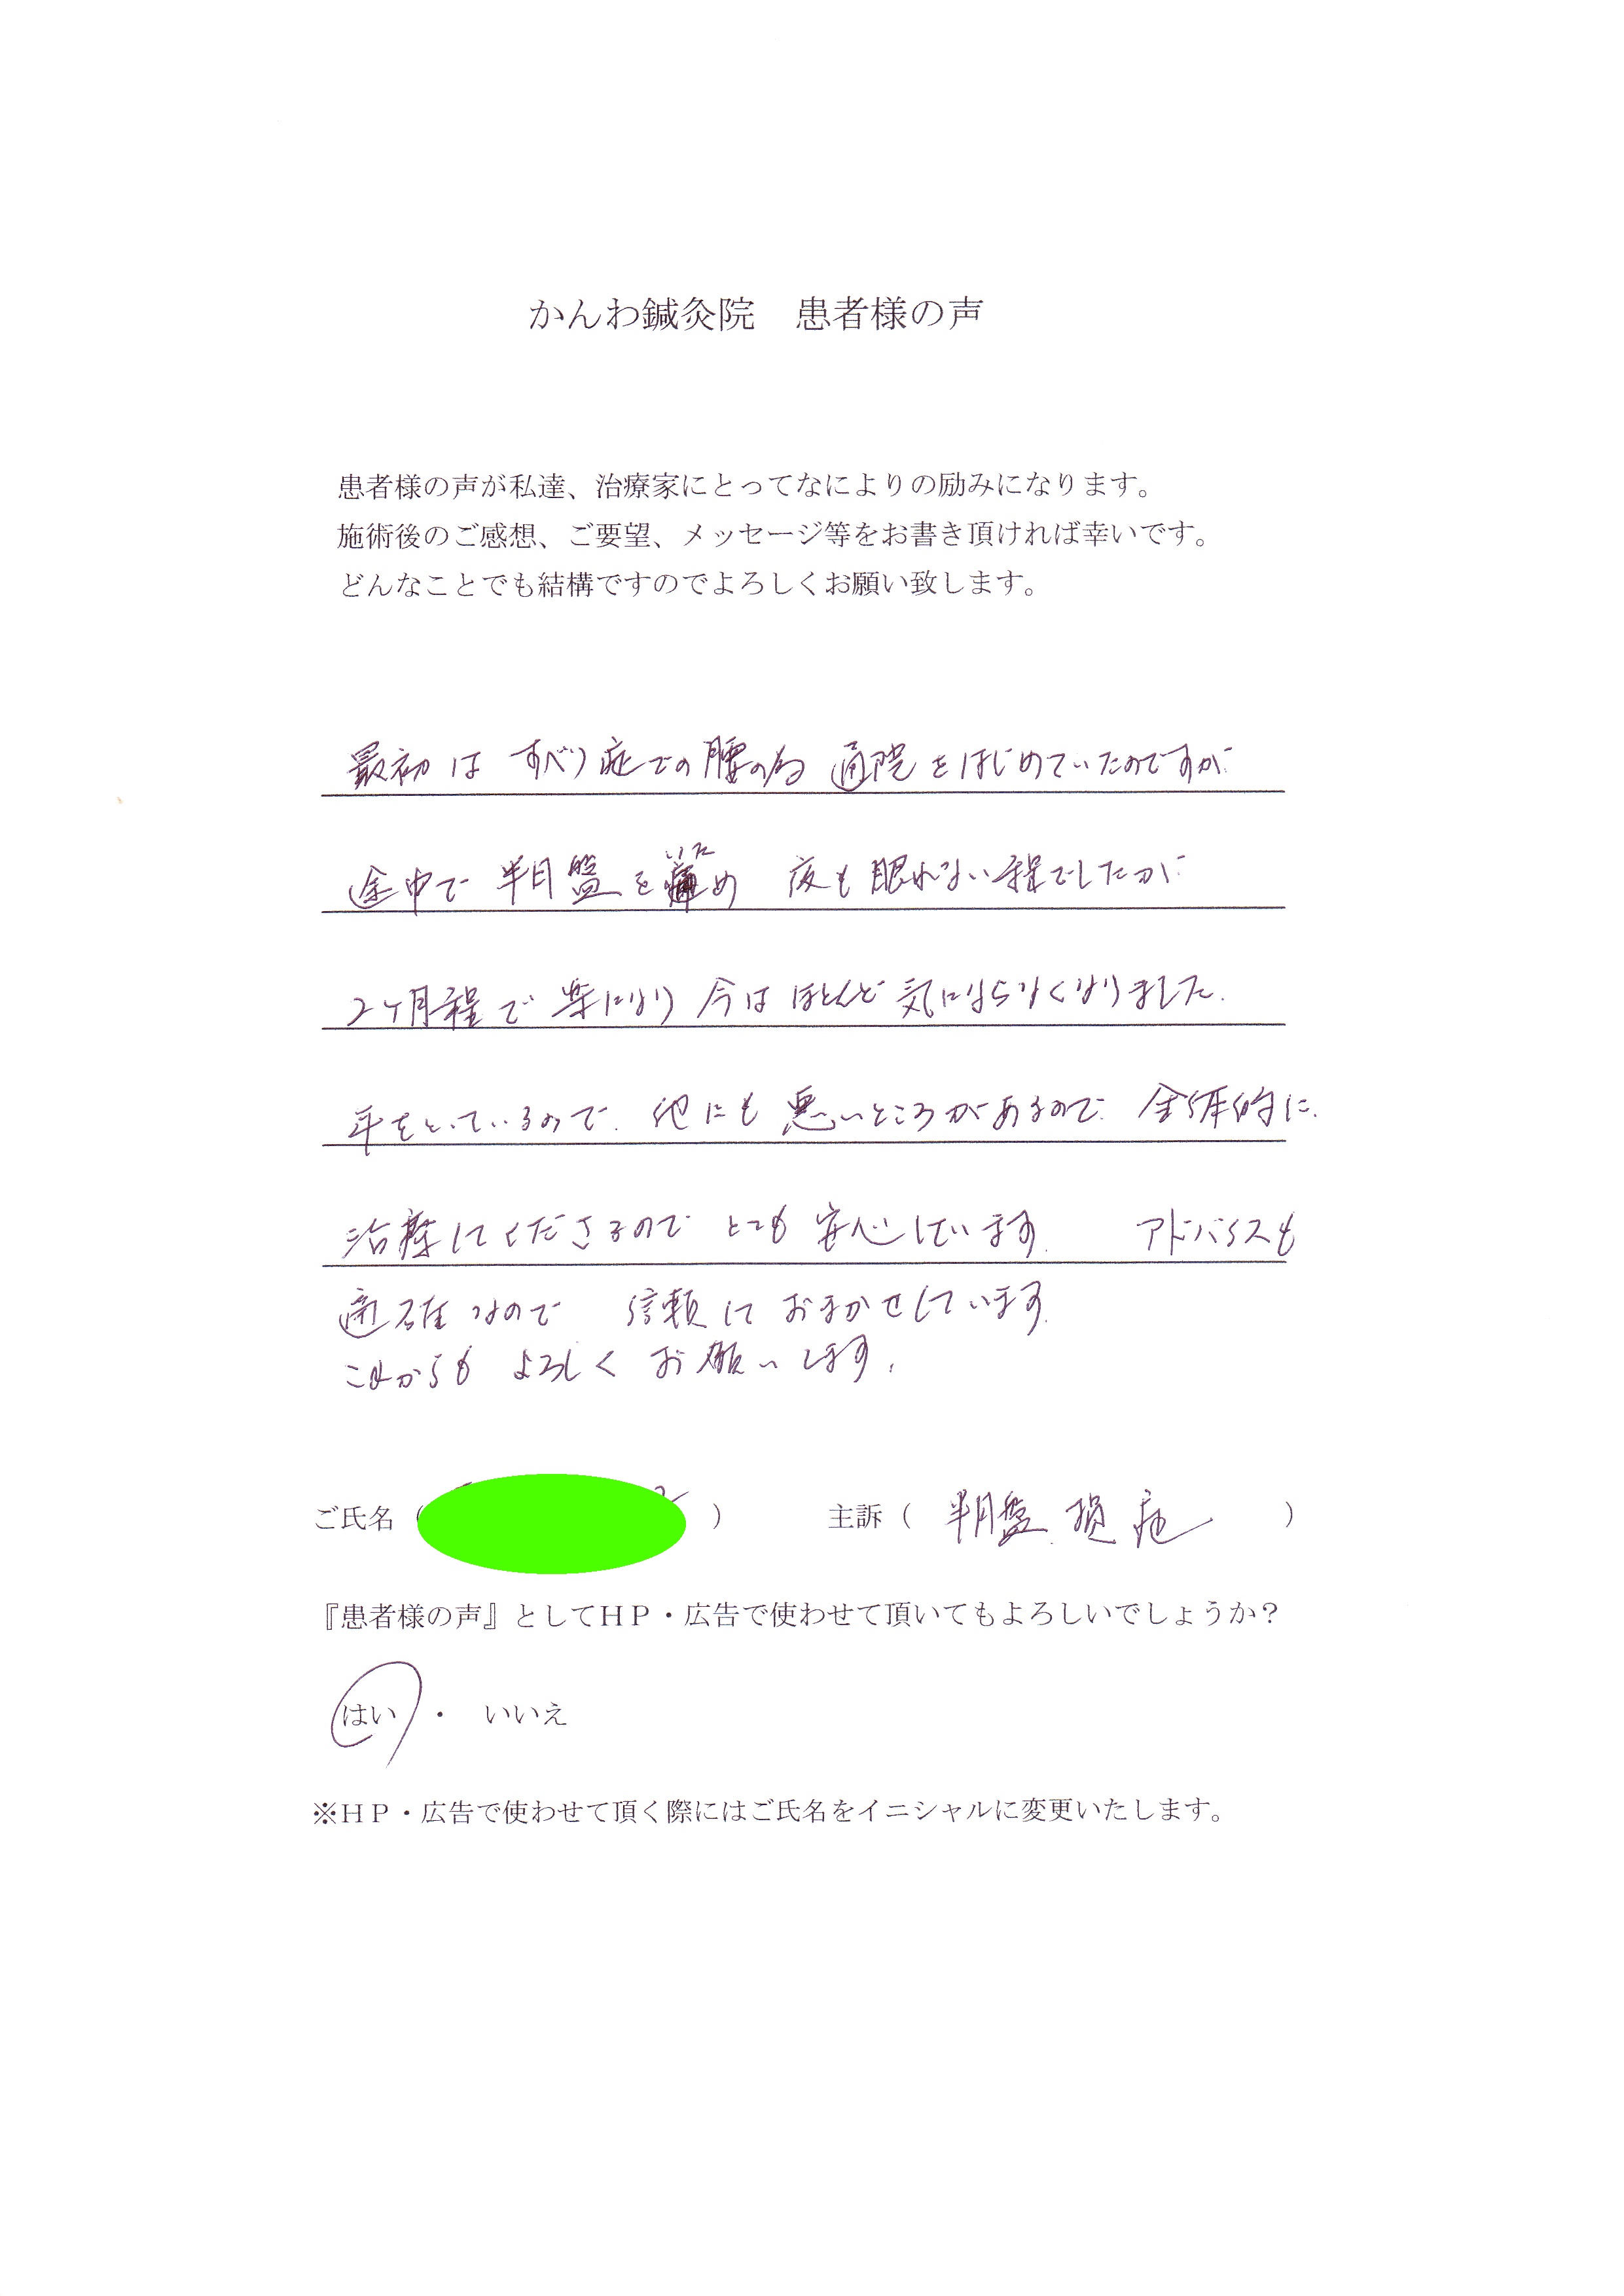 かんわ鍼灸院　患者様の声
患者様の声が私達、治療家にとってなによりの励みになります。
施術後のご感想、ご要望、メッセージ等をお書き頂ければ幸いです。
どんなことでも結構ですのでよろしくお願い致します。
最初は すべり症での腰の為 通院をはじめていたのですが
いた
途中で 半月盤を痛め 夜も眠れない程でしたが
2ヶ月程で 楽になり 今は ほとんど 気にならなくなりました.
年をとっているので. 他にも 悪いところがあるので. 全体的に.
治療してくださるので とても 安心しています. アドバイスも
適確なので 信頼して おまかせしています.
これからも よろしく お願いします.
ご氏名（　　）　主訴（ 半月盤 損 ）
『患者様の声』としてＨＰ・広告で使わせて頂いてもよろしいでしょうか？
はい ・ いいえ
※ＨＰ・広告で使わせて頂く際にはご氏名をイニシャルに変更いたします。